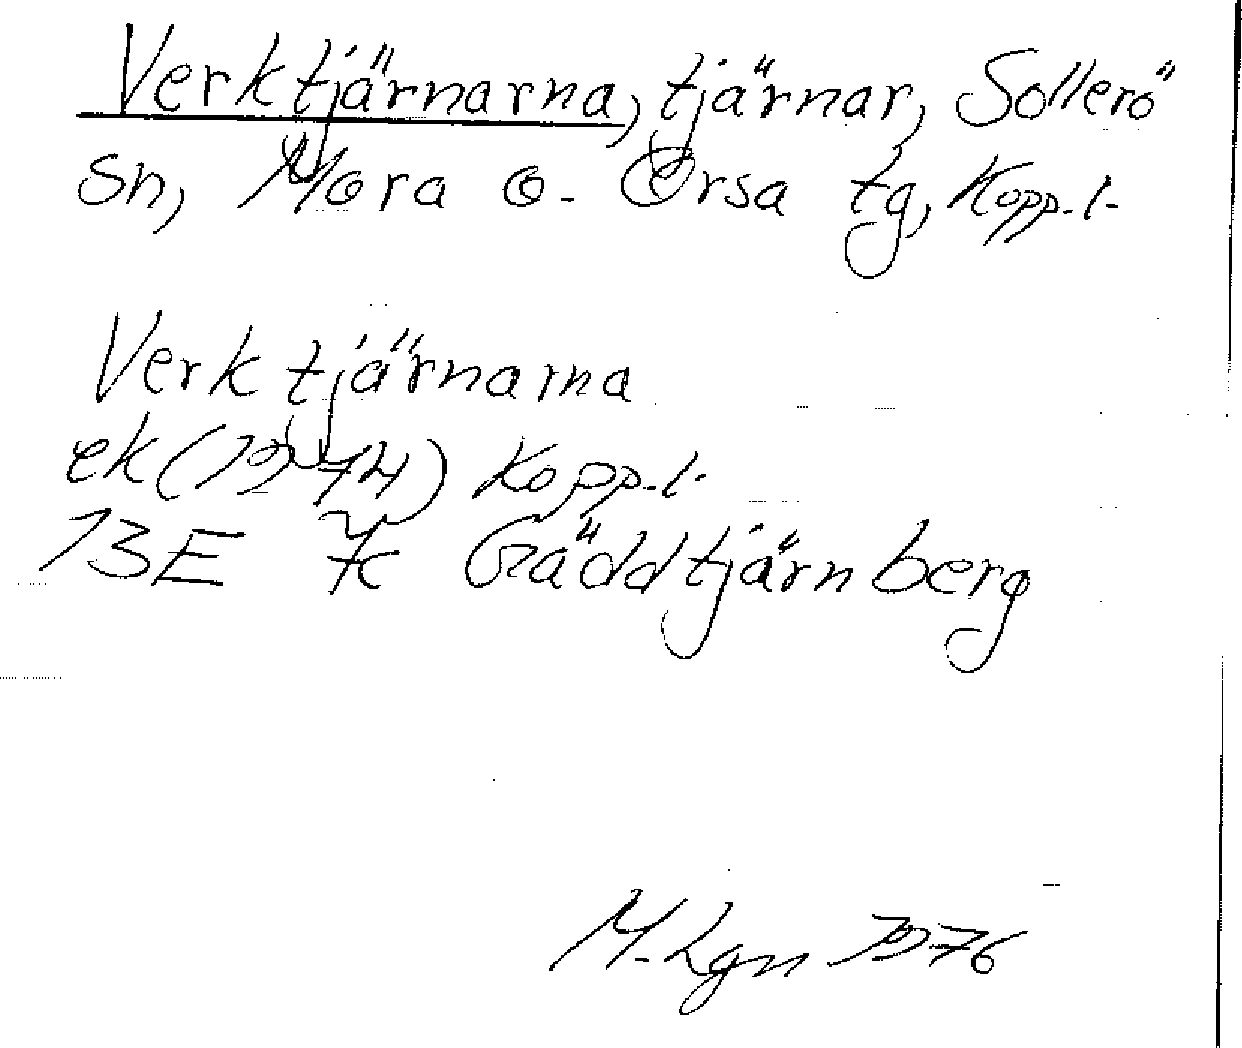 Verktjärnarna, tjärnar, Sollerö
sn, Mora o. Orsa tg, Kopp.l.
Verktjärnarna
ek (1974) Kopp.l.
13E 7c Gäddtjärnberg
M.Lgn 1976